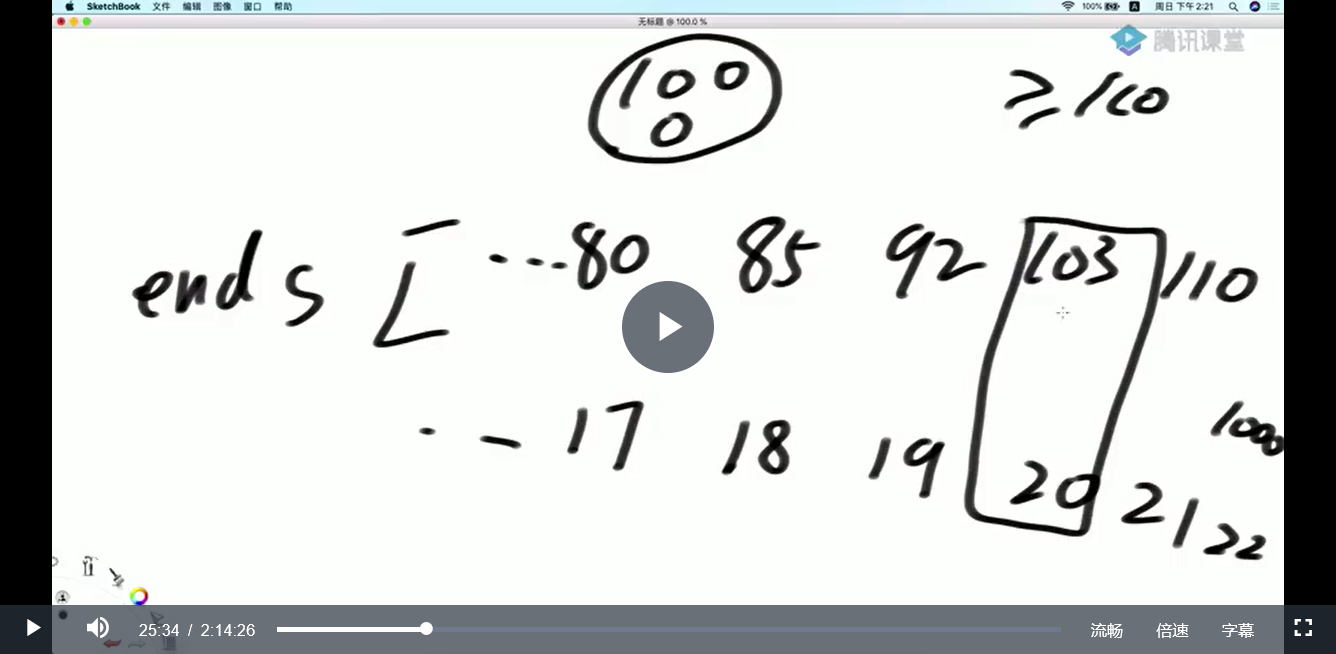 SketchBook 文件 编辑 图像 窗口 帮助 100% A 周日 下午2:21
无标题 @ 100.0 %
腾讯课堂
100
0
≥110
ends [ ...80 85 92 103 110
1000
.. - 17 18 19 20 21 22
25:34 / 2:14:26 流畅 倍速 字幕